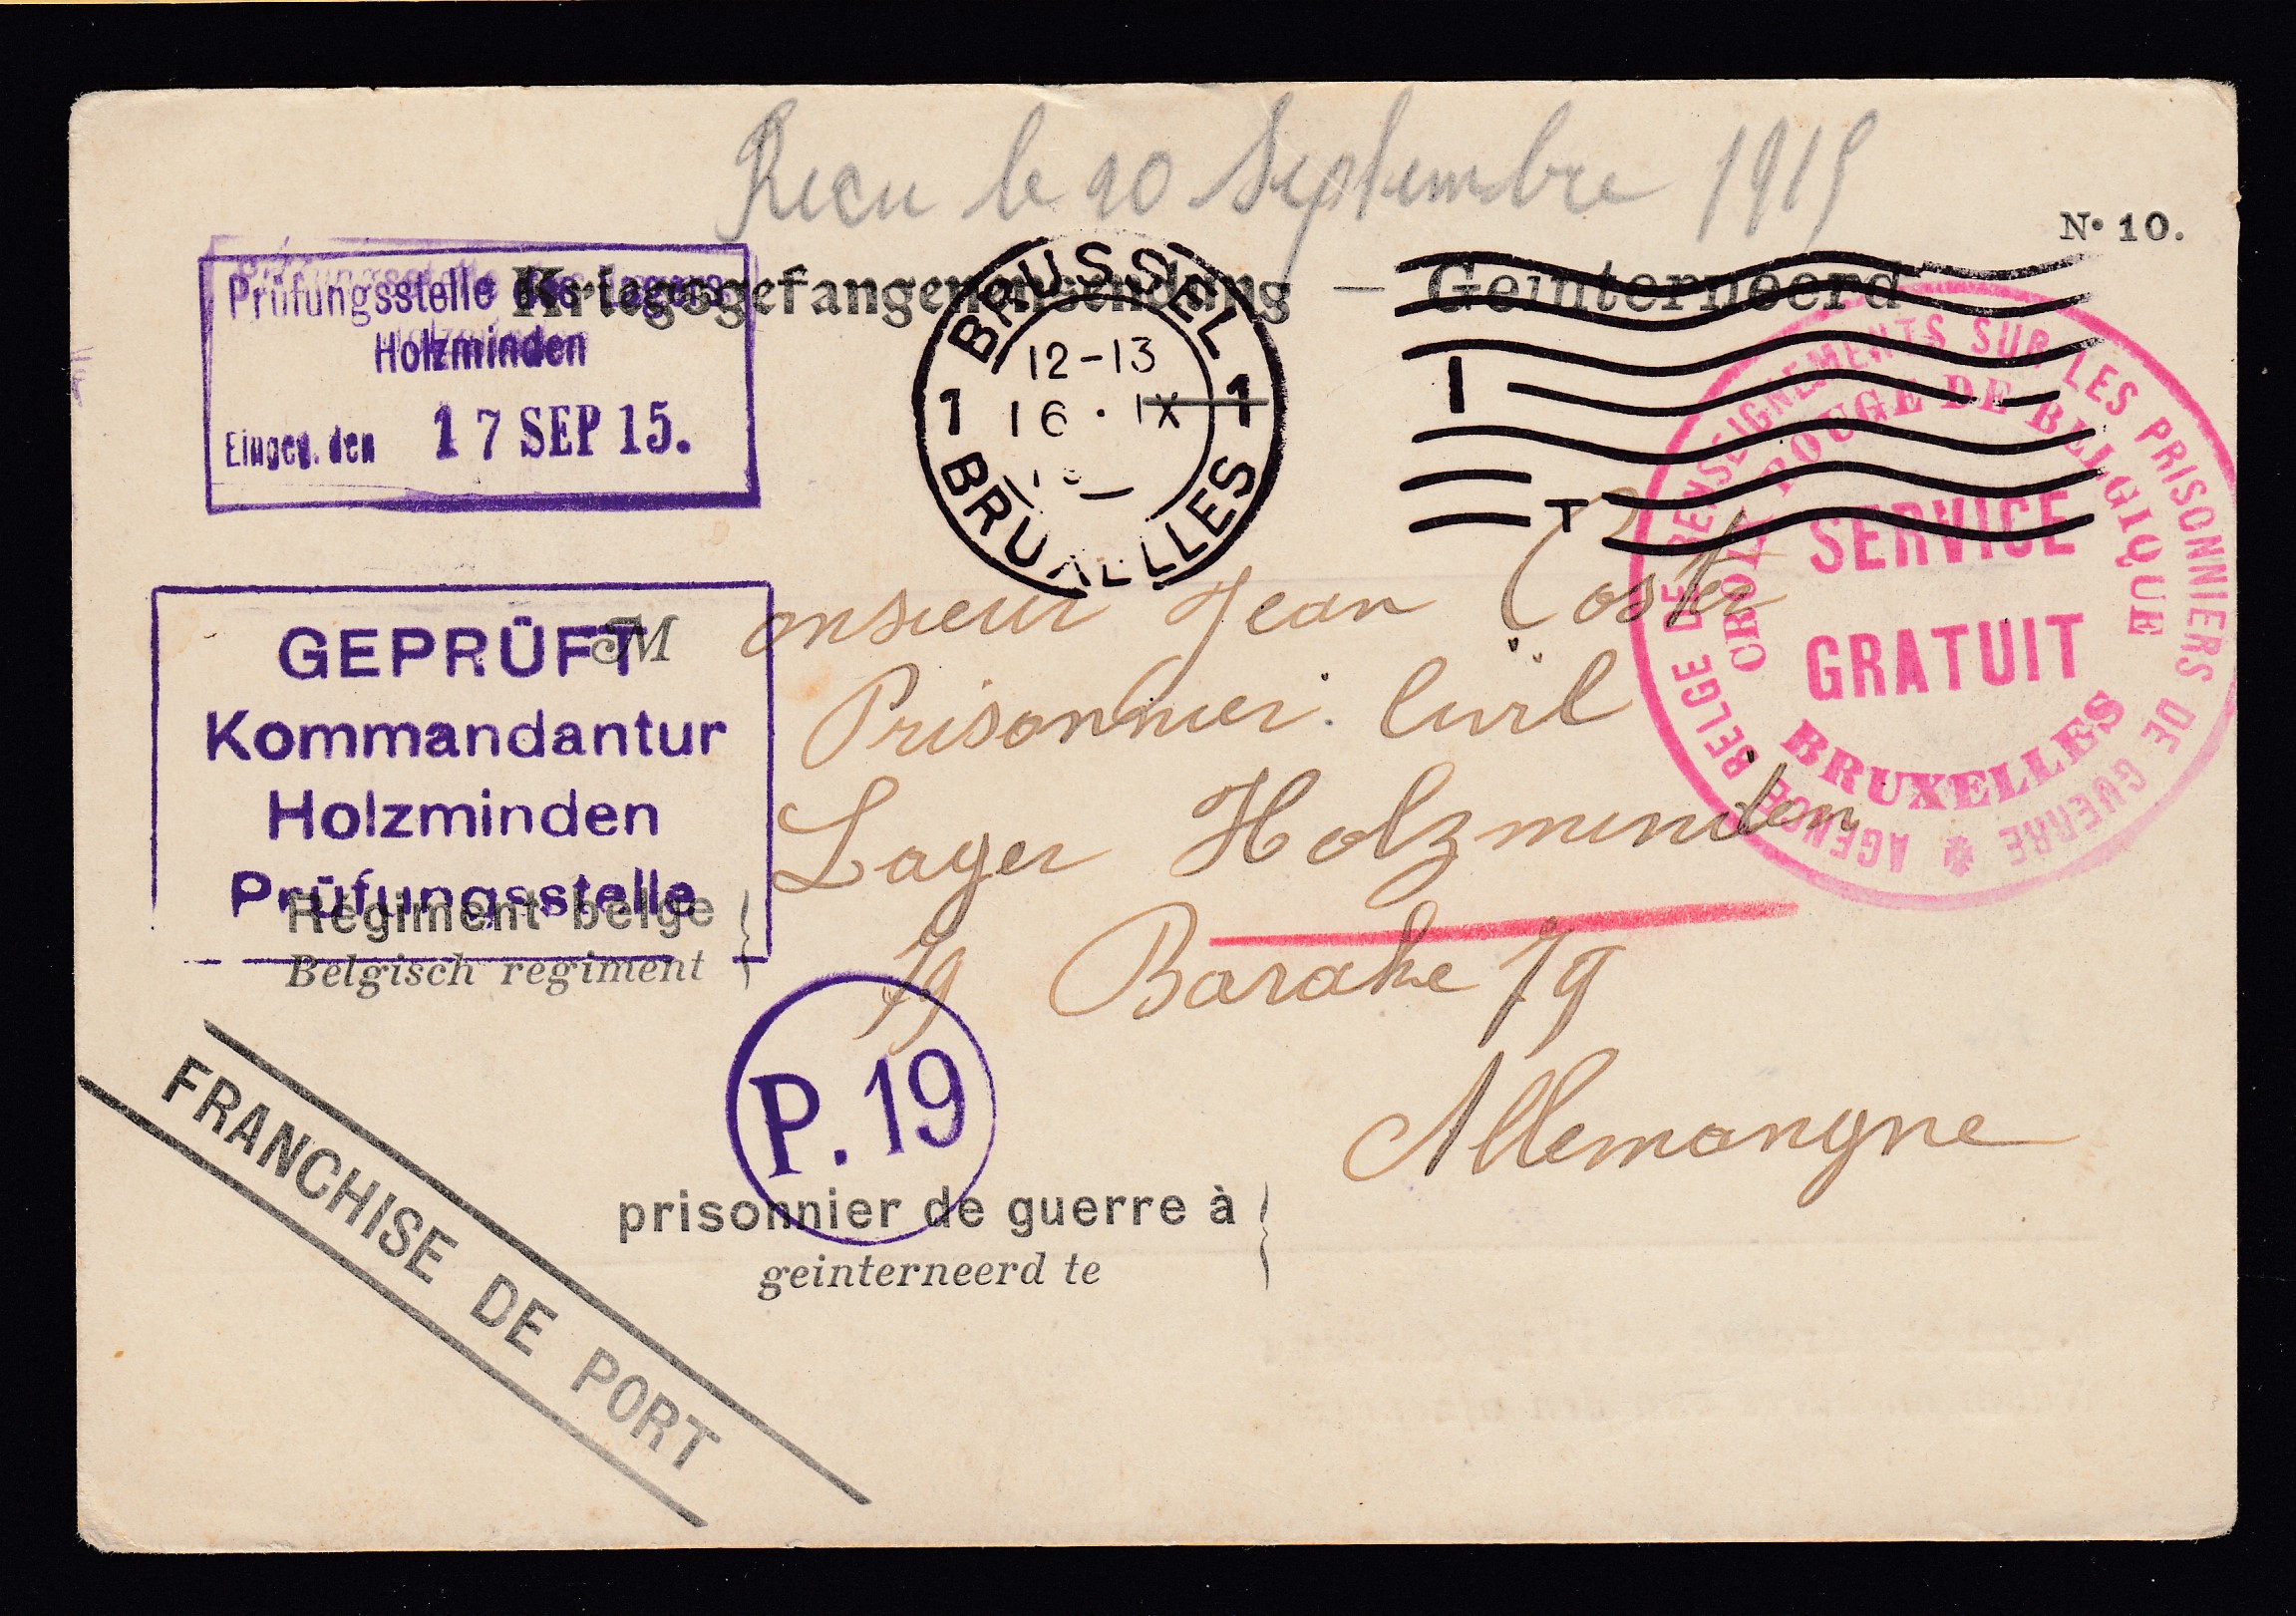 Recu le 20 Septembre 1915
Nº 10.
Kriegsgefangenensendung — Geïnterneerd
Prüfungsstelle des Lagers
Holzminden
Eingeg. den 17 SEP 15.
BRUSSEL
12-13
1 16 · IX 1
BRUXELLES
AGENCE BELGE DE RENSEIGNEMENTS SUR LES PRISONNIERS DE GUERRE
CROIX ROUGE DE BELGIQUE
SERVICE
GRATUIT
BRUXELLES
GEPRÜFT
Kommandantur
Holzminden
Prüfungsstelle
Monsieur Jean Coster
Prisonnier Civil
Lager Holzminden
19 Barake 19
Allemangne
Régiment belge
Belgisch regiment
P. 19
prisonnier de guerre à
geinterneerd te
FRANCHISE DE PORT